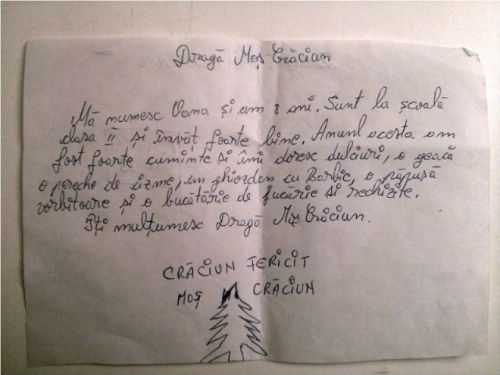 Dragă Moș Crăciun
Mă numesc Oana și am 8 ani. Sunt la școală
clasa II și învăț foarte bine. Anul acesta am
fost foarte cuminte si îmi doresc dulciuri, o geacă
o pereche de cizme, un ghiozdan cu Barbie, o păpușă
vorbitoare și o bucătărie de jucărie si rechizite.
Îți mulțumesc Dragă Moș Crăciun.
CRĂCIUN FERICIT
MOȘ CRĂCIUN